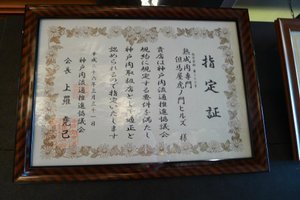 指定証
熟成肉専門
但馬屋虎ノ門ヒルズ 様
貴店は神戸肉流通推進協議会
規約に規定する要件を満たし
神戸肉取扱店として適正と
認められるので指定いたします
平成二十六年三月三十一日
神戸肉流通推進協議会
会長 上羅 尭己